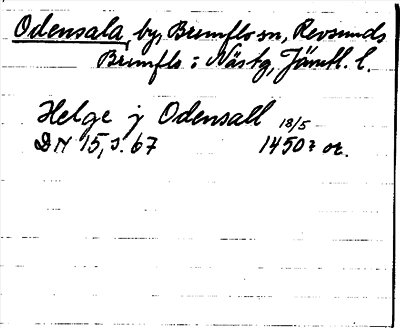 Odensala, by, Brunflo sn, Revsunds
Brunflo : Nästg, Jämtl. l.
Helge j Odensall 18/5
DN 15, s. 67 1450? or.